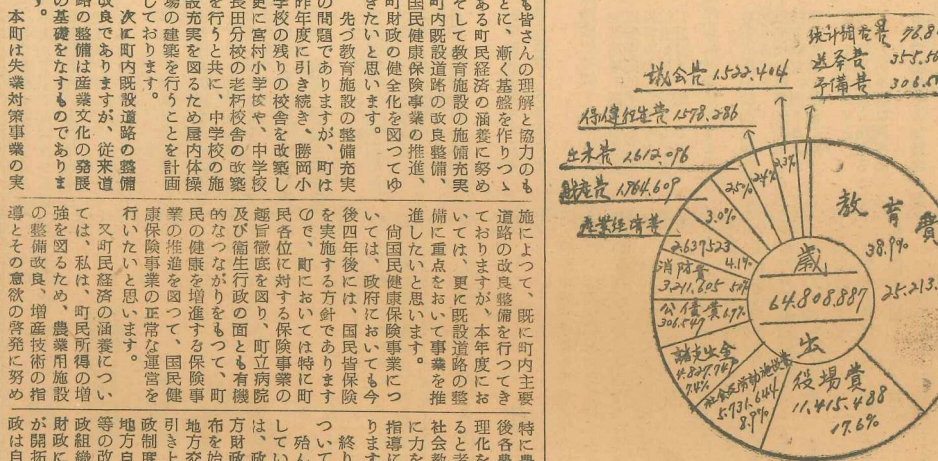 も皆さんの理解と協力のも
とに、漸く基盤を作りつゝ
ある町民経済の涵養に努め
そして教育施設の施備充実
町内既設道路の改良整備、
国民健康保険事業の推進、
町財政の健全化を図つてゆ
きたいと思います。
先づ教育施設の整備充実
の問題でありますが、町は
昨年度に引き続き、勝岡小
学校の残りの校舎を改築し
更に宮村小学校や、中学校
長田分校の老朽校舎の改築
を行うと共に、中学校の施
設充実を図るため屋内体操
場の建築を行うことを計画
しております。
次に町内既設道路の整備
でありますが、従来道
路の整備は産業文化の発展
の基礎をなすものでありま
す。
本町は失業対策事業の実
施によつて、既に町内主要
道路の改良整備を行つてき
ておりますが、本年度にお
いては、更に既設道路の整
備に重点をおいて事業を推
進したいと思います。
尚国民健康保険事業につ
いては、政府においても今
後四年後には、国民皆保険
を実施する方針であります
ので、町においては特に町
民各位に対する保険事業の
趣旨徹底を図り、町立病院
及び衛生行政の面とも有機
的なつながりをもつて、町
民の健康を増進する保険事
業の推進を図つて、国民健
康保険事業の正常な運営を
行いたいと思います。
又町民経済の涵養につい
ては、私は、町民所得の増
強を図るため、農業用施設
の整備改良、増産技術の指
導とその意欲の啓発に努め
特に農
後各
理化を
ると考
社会教
に力を
指導に
ります
終り
ついて
殆ん
してい
は、政
方財政
布を始
地方交
引き上
政制度
地方自
等の改
政組織
財政に
が開拓
政は自
統計調査費 76.8
選挙費 355.56
予備費 306.5
議会費 1.522.404
保健衛生費 1.578.286
土木費 1.612.096
財産費 1.964.609
産業経済費
2.637.523
4.1%
3.0%
2.5%
2.4%
2.3%
消防費
3.211.605
公債費
諸支出金
4.827.747
7.4%
社会及労働施設費
5.731.644
8.9%
役場費
11.415.488
17.6%
教育費
38.9%
25.213.
歳
64.808.887
出